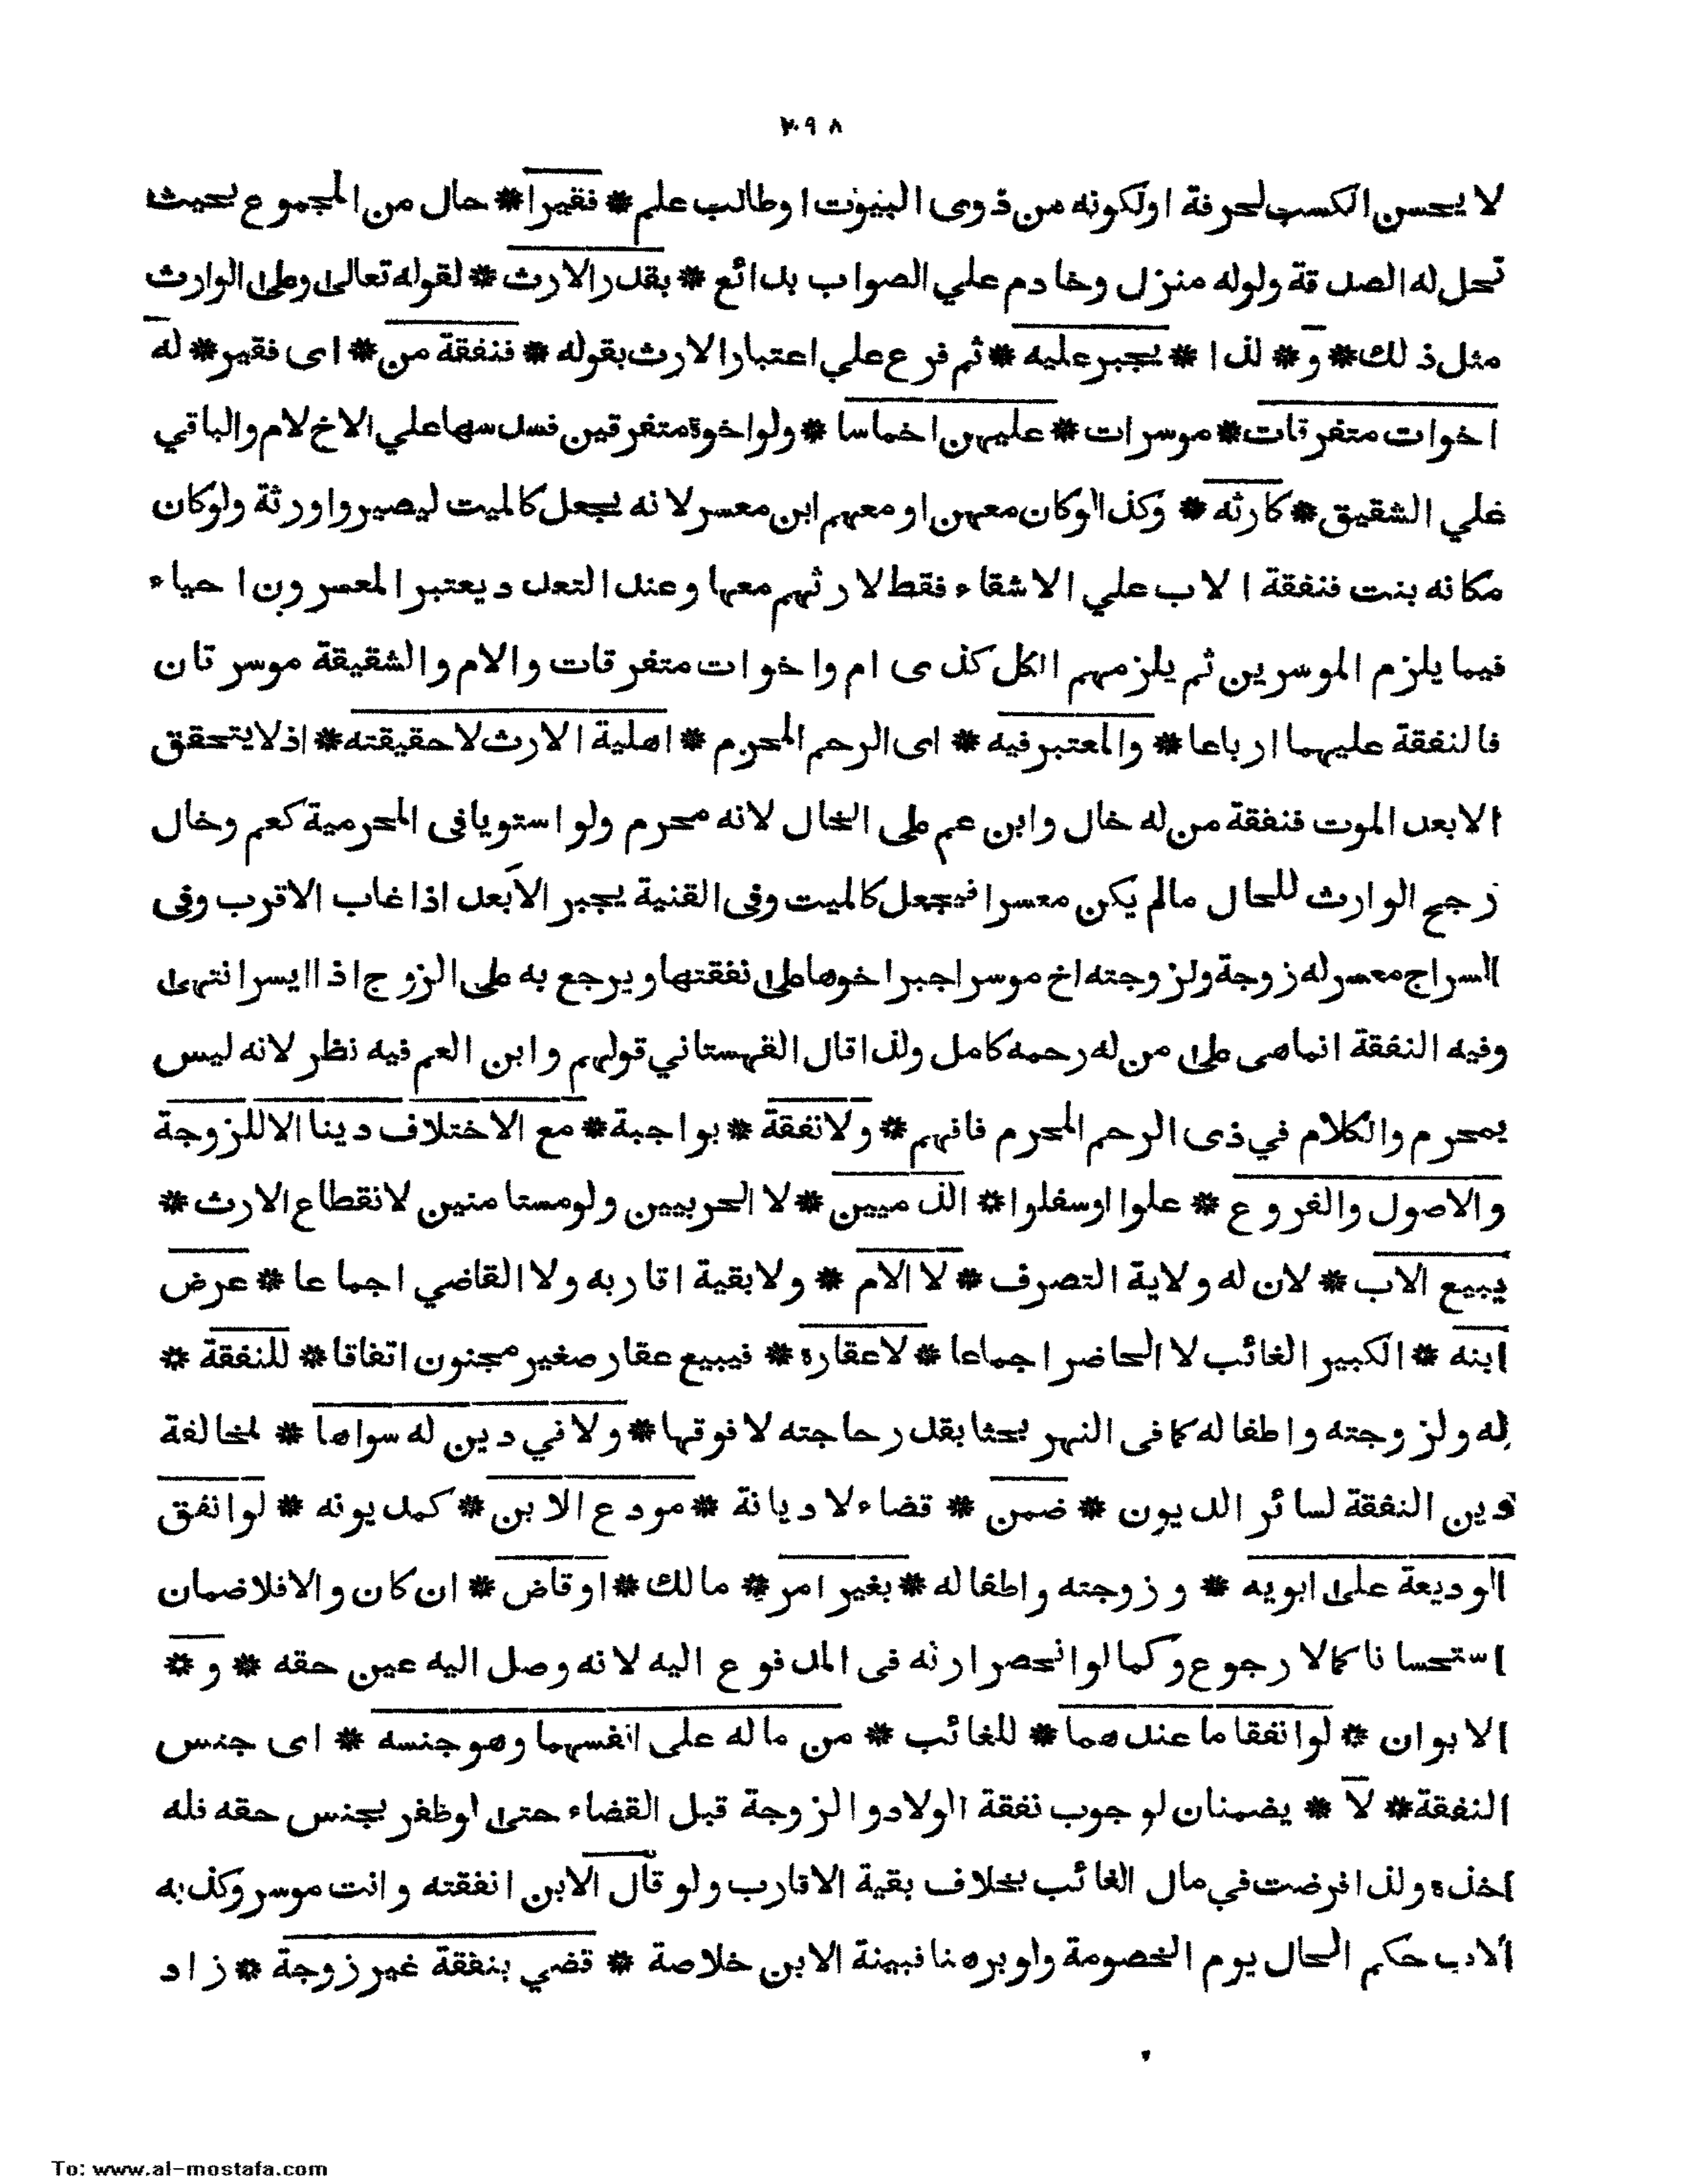 ٢٠٩٨
لا يحسن الكسب لحرفة اولكونه من ذوى البيوت اوطالب علم * فقيرا * حال من المجموع بحيث
تحل له الصدقة ولوله منزل وخادم علي الصواب بدائع * بقدر الارث * لقوله تعالى وعلى الوارث
مثل ذلك * و * لذا * يجبر عليه * ثم فرع علي اعتبار الارث بقوله * فنفقة من * اى فقير * له
اخوات متفرقات * موسرات * عليهن اخماسا * ولو اخوة متفرقين فسدسها علي الاخ لام والباقي
علي الشقيق * كارثه * وكذا لوكان معهن او معهم ابن معسر لانه يجعل كالميت ليصيروا ورثة ولوكان
مكانه بنت فنفقة الاب علي الاشقاء فقط لارثهم معها وعند التعدد يعتبر المعسرون احياء
فيما يلزم الموسرين ثم يلزمهم الكل كذى ام واخوات متفرقات والام والشقيقة موسرتان
فالنفقة عليهما ارباعا * والمعتبر فيه * اى الرحم المحرم * اهلية الارث لا حقيقته * اذ لا يتحقق
الا بعد الموت فنفقة من له خال وابن عم على الخال لانه محرم ولو استويا فى المحرمية كعم وخال
رجح الوارث للحال مالم يكن معسرا فيجعل كالميت وفى القنية يجبر الابعد اذا غاب الاقرب وفى
السراج معسر له زوجة ولزوجته اخ موسر اجبر اخوها على نفقتها ويرجع به على الزوج اذا ايسر انتهى
وفيه النفقة انماهى على من له رحمه كامل ولذا قال القهستاني قولهم وابن العم فيه نظر لانه ليس
بمحرم والكلام في ذى الرحم المحرم فافهم * ولا نفقة * بواجبة * مع الاختلاف دينا الا للزوجة
والاصول والفروع * علوا اوسفلوا * الذميين * لا الحربيين ولو مستامنين لانقطاع الارث *
يبيع الاب * لان له ولاية التصرف * لا الام * ولا بقية اقاربه ولا القاضي اجماعا * عرض
ابنه * الكبير الغائب لا الحاضر اجماعا * لا عقاره * فيبيع عقار صغير مجنون اتفاقا * للنفقة *
له ولزوجته واطفاله كما فى النهر بحثا بقدر حاجته لا فوقها * ولا في دين له سواها * لمخالفة
دين النفقة لسائر الديون * ضمن * قضاء لا ديانة * مودع الابن * كمديونه * لو انفق
الوديعة على ابويه * وزوجته واطفاله * بغير امر * مالك * اوقاض * ان كان والا فلا ضمان
استحسانا كما لا رجوع وكما لو انحصر ارثه فى المدفوع اليه لانه وصل اليه عين حقه * و *
الابوان * لو انفقا ما عندهما * للغائب * من ماله على انفسهما وهو جنسه * اى جنس
النفقة * لا * يضمنان لوجوب نفقة الولاد والزوجة قبل القضاء حتى لوظفر بجنس حقه فله
اخذه ولذا فرضت في مال الغائب بخلاف بقية الاقارب ولو قال الابن انفقته وانت موسر وكذبه
الاب حكم الحال يوم الخصومة ولو برهنا فبينة الابن خلاصة * قضي بنفقة غير زوجة * زاد
To: www.al-mostafa.com